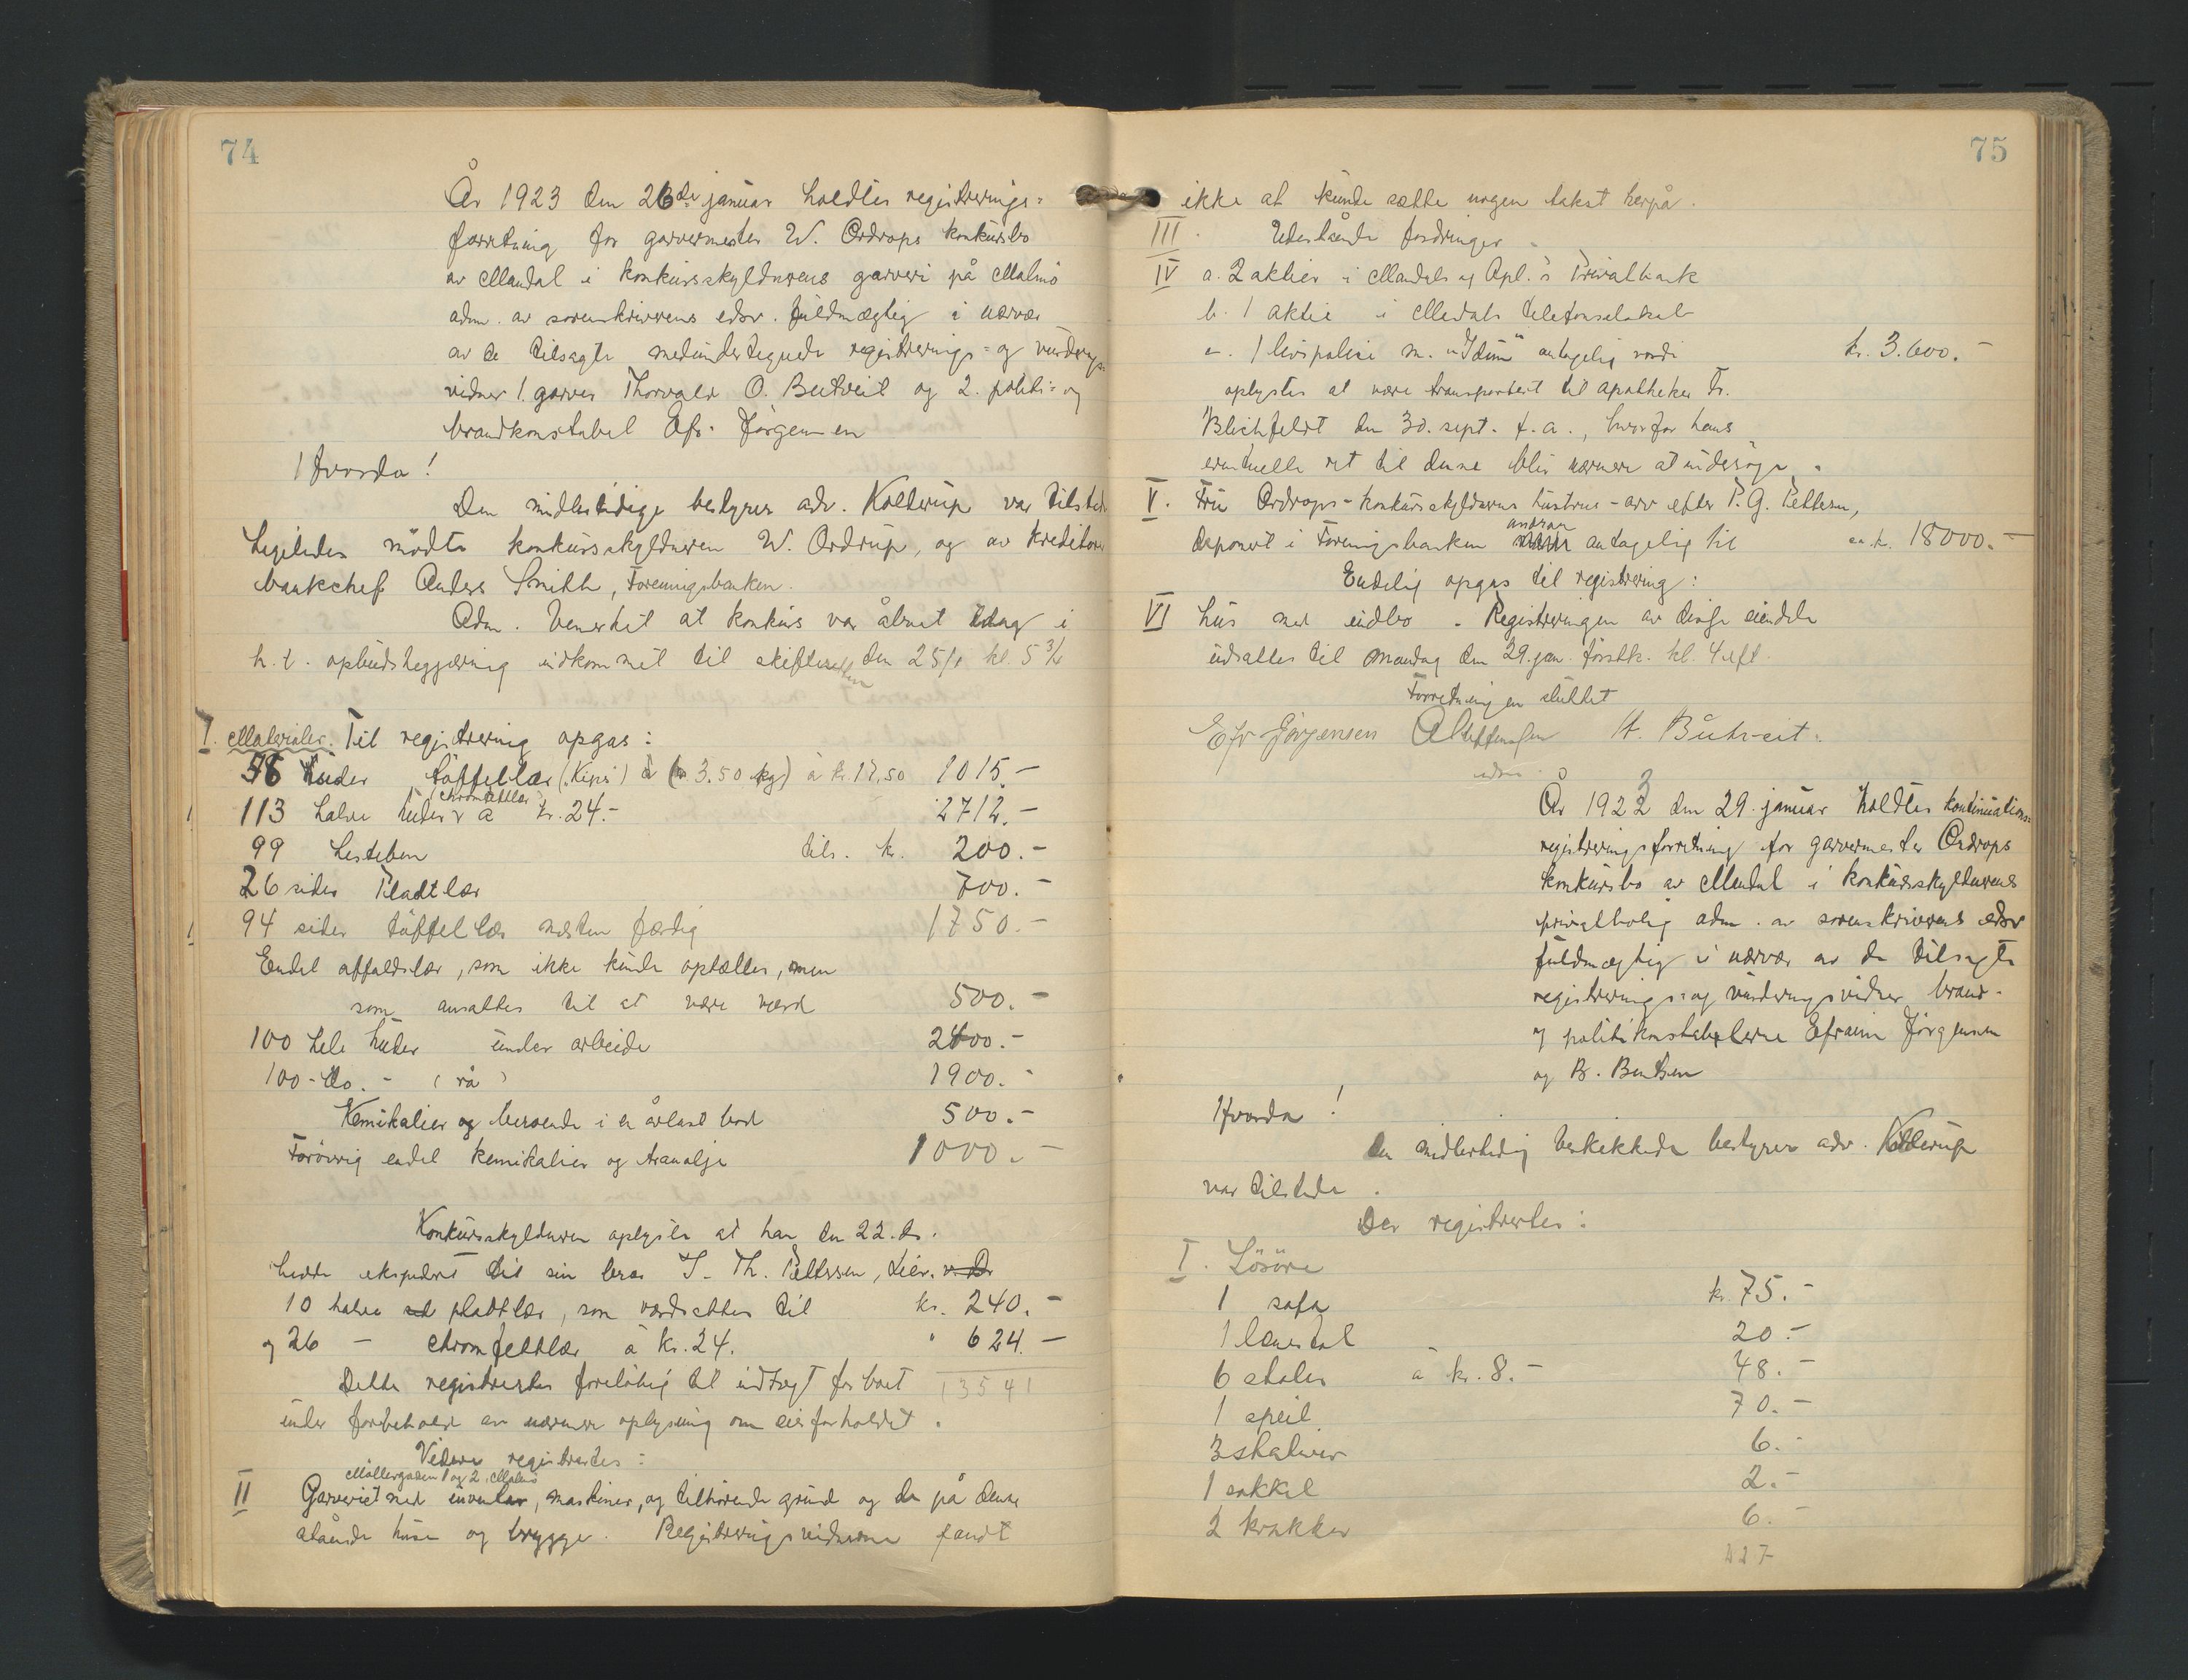 74
År 1923 den 26de januar holdtes registrerings=
forretning for garvermester W. Ordrops konkursbo
av Mandal i konkursskyldnerens garveri på Malmø
adm. av sorenskriverens edsv. fuldmægtig i nærvær
av de tilsagte medundertegnede registrerings= og vurderings
vidner 1. garver Thorvald O. Butveit og 2. politi= og
brandkonstabel Efr. Jørgensen
Hvorda!
Den midlertidige bestyrer adv. Kolderup var tilstede
Ligeledes mødte konkursskyldneren W. Ordrup, og av kreditorer
bankchef Anders Smith, Foreningsbanken.
Adm. bemerket at konkurs var åbnet idag i
h. t. opbudsbegjæring indkommet til skifteretten den 25/1 kl. 5 3/4
I. Materialer. Til registrering opgas:
58 huder tøffellær (Kips) à (3.50 kg) à kr. 17,50 1015.-
113 halve huder chromfetlær à kr. 24.- 2712.-
99 hesteben tils. kr. 200.-
26 sider Plattlær 700.-
94 sider tøffellær næsten færdig 1750.-
Endel affaldslær, som ikke kunde optælles, men
som ansattes til at være værd 500.-
100 hele huder under arbeide 2400.-
100 - do. - (rå) 1900.-
Kemikalier og beroende i en avlast bod 500.-
Forøvrig endel kemikalier og tranolje 1000.-
Konkursskyldneren oplyste at han den 22. ds.
hadde ekspedert til sin bror J. Th. Pettersen, Lier.
10 halve plattlær, som værdsattes til kr. 240.-
og 26 - chromfettlær à kr. 24. " 624.-
Dette registrertes foreløbig til indtægt for boet 13541
under forbehold av nærmere oplysning om eierforholdet.
Videre registrertes:
Møllergaden 1 og 2, Malmø
II Garveriet med inventar, maskiner, og tilhørende grund og de på denne
stående huse og brygge. Registreringsvidnerne fandt
75
ikke at kunde sætte nogen takst herpå.
III. Utestående fordringer.
IV a. 2 aktier i Mandals og Opl.'s Privatbank
b. 1 aktie i Mandals telefonselskab
c. 1 livspolise m. "Idun" antagelig værdi kr. 3.600.-
oplystes at være transportert til apotheker Fr.
Blichfeldt den 30. sept. f. a., hvorfor hans
eventuelle ret til denne blir nærmere at undersøge.
V. Fru Ordrops - konkursskyldnerens hustrus - arv efter P. G. Pettersen,
deponert i Foreningsbanken andrar antagelig til ca. kr. 18000.-
Endelig opgas til registrering:
VI hus med indbo. Registreringen av disse eiendele
utsattes til mandag den 29. jan. førstk. kl. 4 eft.
Forretningen sluttet
Efr Jørgensen A Steffensen H. Båtveit.
edsv.
År 1923 den 29. januar holdtes kontinuations=
registreringsforretning for garvermester Ordrops
konkursbo av Mandal i konkursskyldnerens
privatbolig adm. av sorenskriverens edsv
fuldmægtig i nærvær av de tilsagte
registrerings= og vurderingsvidner brand-
og politikonstablerne Efraim Jørgensen
og B. Bentsen
Hvorda!
Den midlertidig beskikkede bestyrer adv. Kolderup
var tilstede.
Der registrertes:
I. Løsøre
1 sofa kr. 75.-
1 lænestol 20.-
6 stoler à kr. 8.- 48.-
1 speil 70.-
3 stativer 6.-
1 sokkel 2.-
2 krakker 6.-
227-